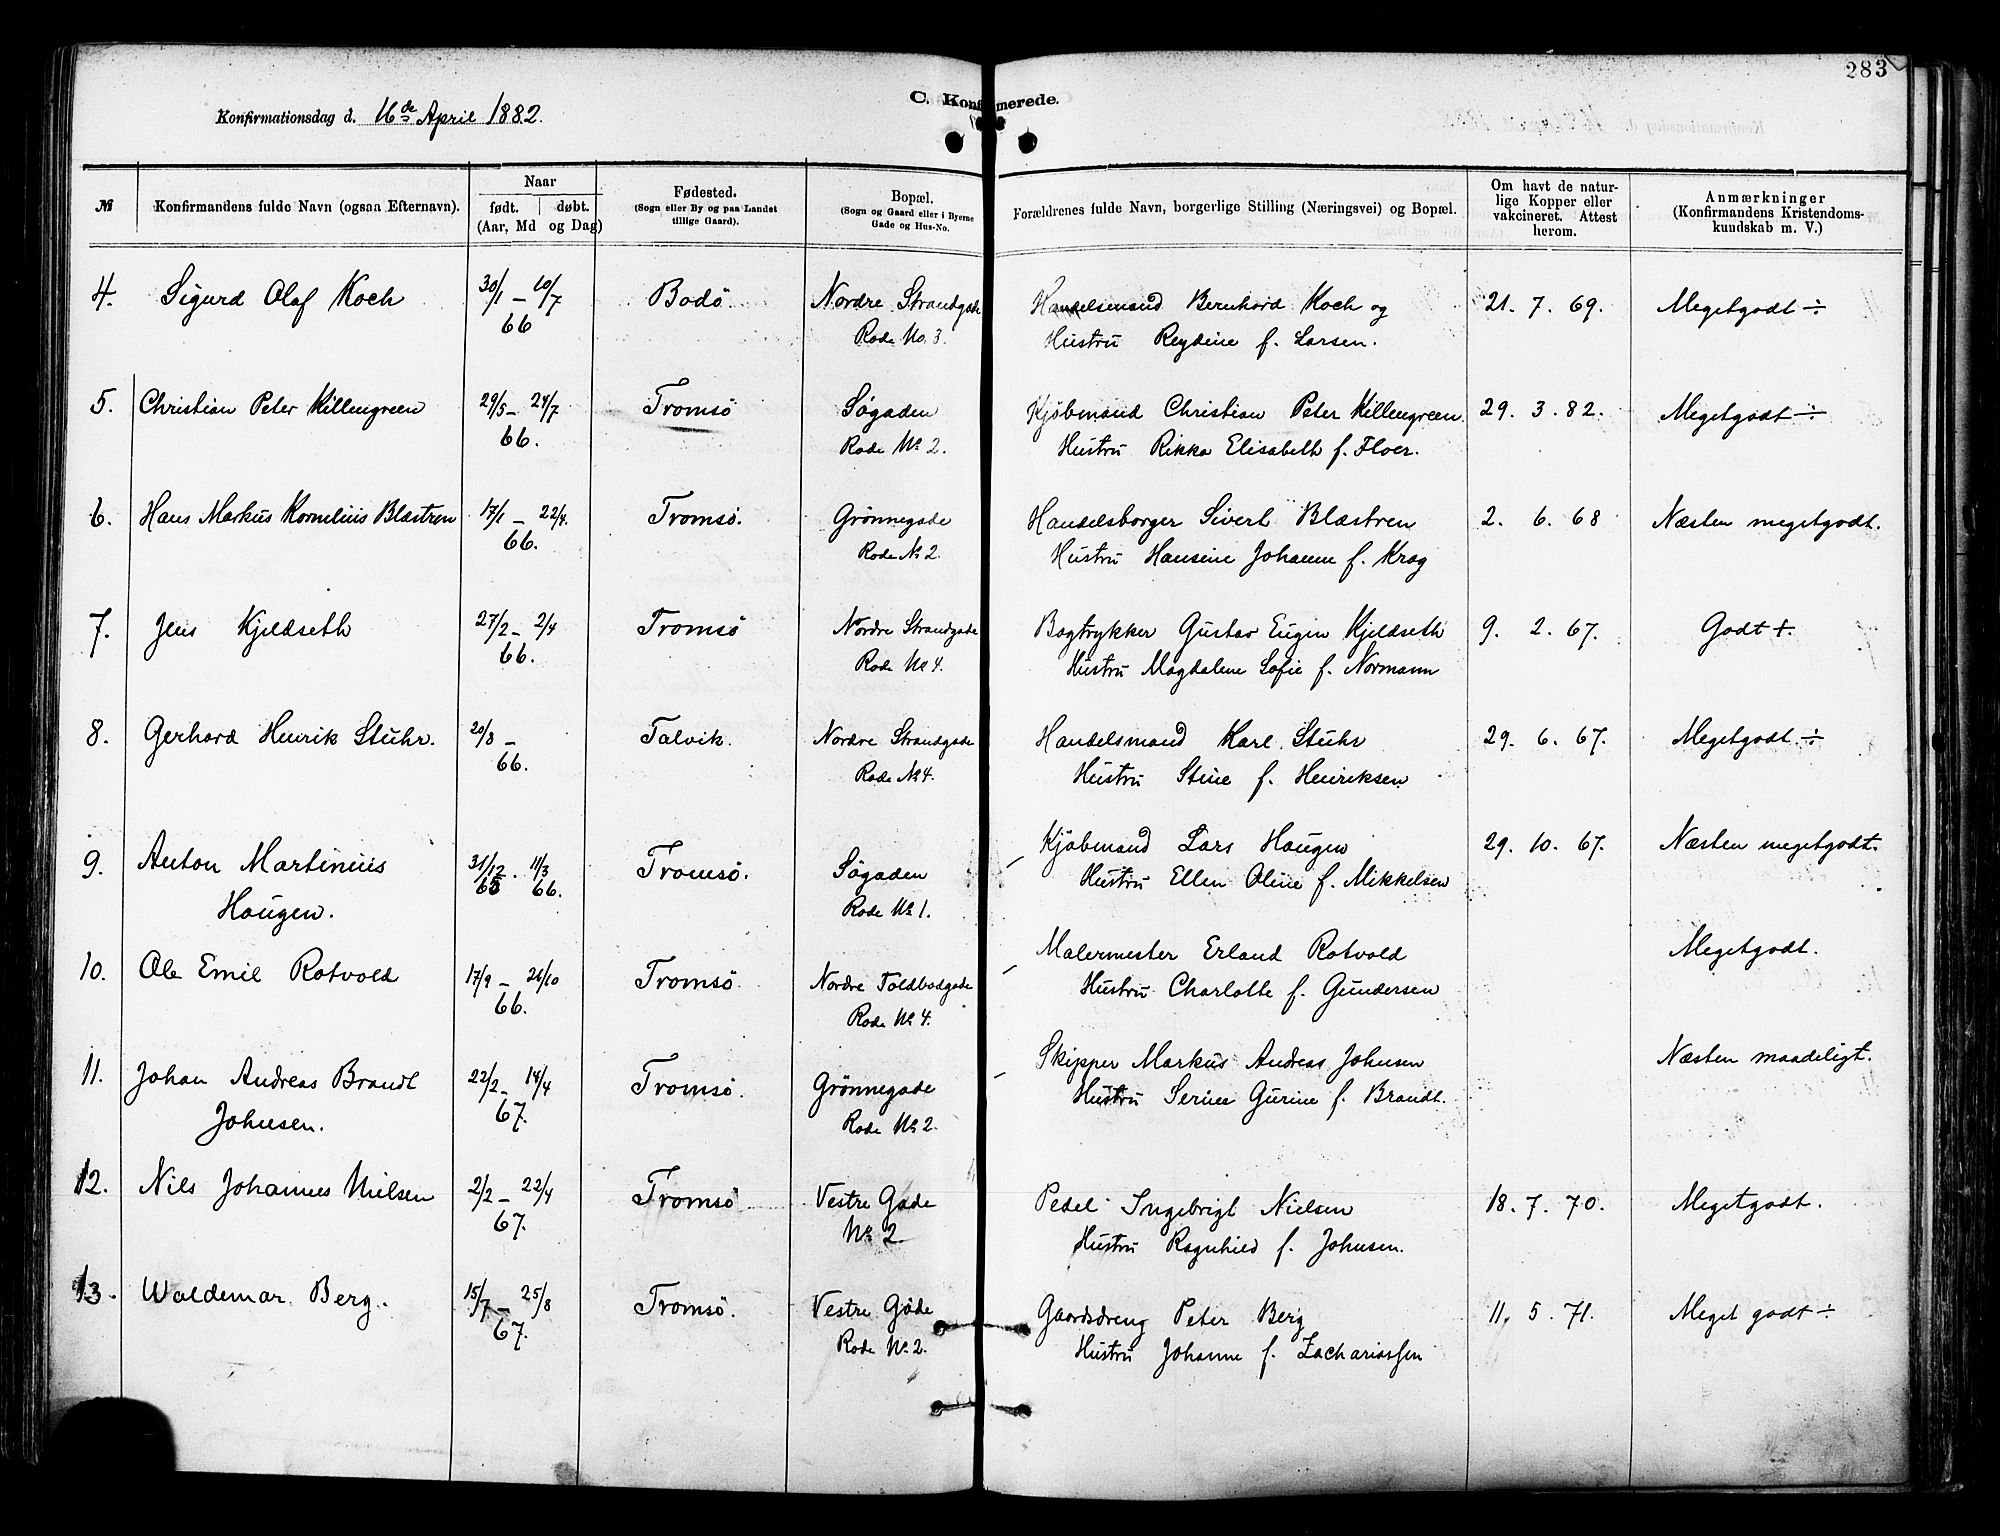 283
C. Konfirmerede.
Konfirmationsdag d. 16de April 1882.
№
Konfirmandens fulde Navn (ogsaa Efternavn).
Naar
født. døbt.
(Aar, Md og Dag)
Fødested.
(Sogn eller By og paa Landet
tillige Gaard).
Bopæl.
(Sogn og Gaard eller i Byerne
Gade og Hus-No.
Forældrenes fulde Navn, borgerlige Stilling (Næringsvei) og Bopæl.
Om havt de natur-
lige Kopper eller
vakcineret. Attest
herom.
Anmærkninger
(Konfirmandens Kristendoms-
kundskab m. V.)
4. Sigurd Olaf Koch 30/1 – 10/7 Bodö. Nordre Strandgade Handelsmand Bernhard Koch og 21. 7. 69. Megetgodt ÷
66 Rode No. 3. Hustru Regdine f. Larsen.
5. Christian Peter Killengreen 29/5 – 24/7 Tromsö Søgaden Kjöbmand Christian Peter Killengreen 29. 3. 82. Megetgodt ÷
66. Rode No 2. Hustru Rikka Elisabeth f. Floer.
6. Hans Markus Kornelius Blæstren 17/1 – 22/4. Tromsö. Grönnegade Handelsborger Sivert Blæstren 2. 6. 68 Næsten megetgodt.
66. Rode No 2. Hustru Hansine Johanne f. Krag
7. Jens Kjeldseth 27/2 – 2/4 Tromsö Nordre Strandgade Bogtrykker Gustav Eugen Kjeldseth 9. 2. 67. Godt +.
66. Rode No 4. Hustru Magdalene Sofie f. Normann
8. Gerhard Henrik Stuhr. 20/8 – Talvik. Nordre Strandgade Handelsmand Karl Stuhr 29. 6. 67. Megetgodt ÷
66. Rode No 4. Hustru Stine f. Henriksen
9. Anton Martinius 31/12. 11/3 Tromsö. Søgaden Kjöbmand Lars Haugen 29. 10. 67. Næsten megetgodt.
Haugen. 65 66. Rode No 1. Hustru Ellen Oline f. Mikkelsen
10. Ole Emil Rotvold 17/9 – 26/10 Tromsö Nordre Toldbodgade Malermester Erland Rotvold Megetgodt.
66. Rode No 4. Hustru Charlotte f. Gundersen
11. Johan Andreas Brandt 22/2 – 14/4 Tromsö. Grönnegade Skipper Markus Andreas Johnsen Næsten maadeligt.
Johnsen. 67. Rode No 2. Hustru Serine Gurine f. Brandt.
12. Nils Johannes Nielsen 2/2 – 22/4 Tromsö Vestre Gade Pedel Ingebrigt Nielsen 18. 7. 70. Megetgodt.
67. No 2. Hustru Ragnhild f. Johnsen.
13. Waldemar Berg. 15/7 – 25/8 Tromsö. Vestre Gade Gaardsdreng Peter Berg 11. 5. 71. Meget godt ÷
67. Rode No 2. Hustru Johanne f. Zachariassen